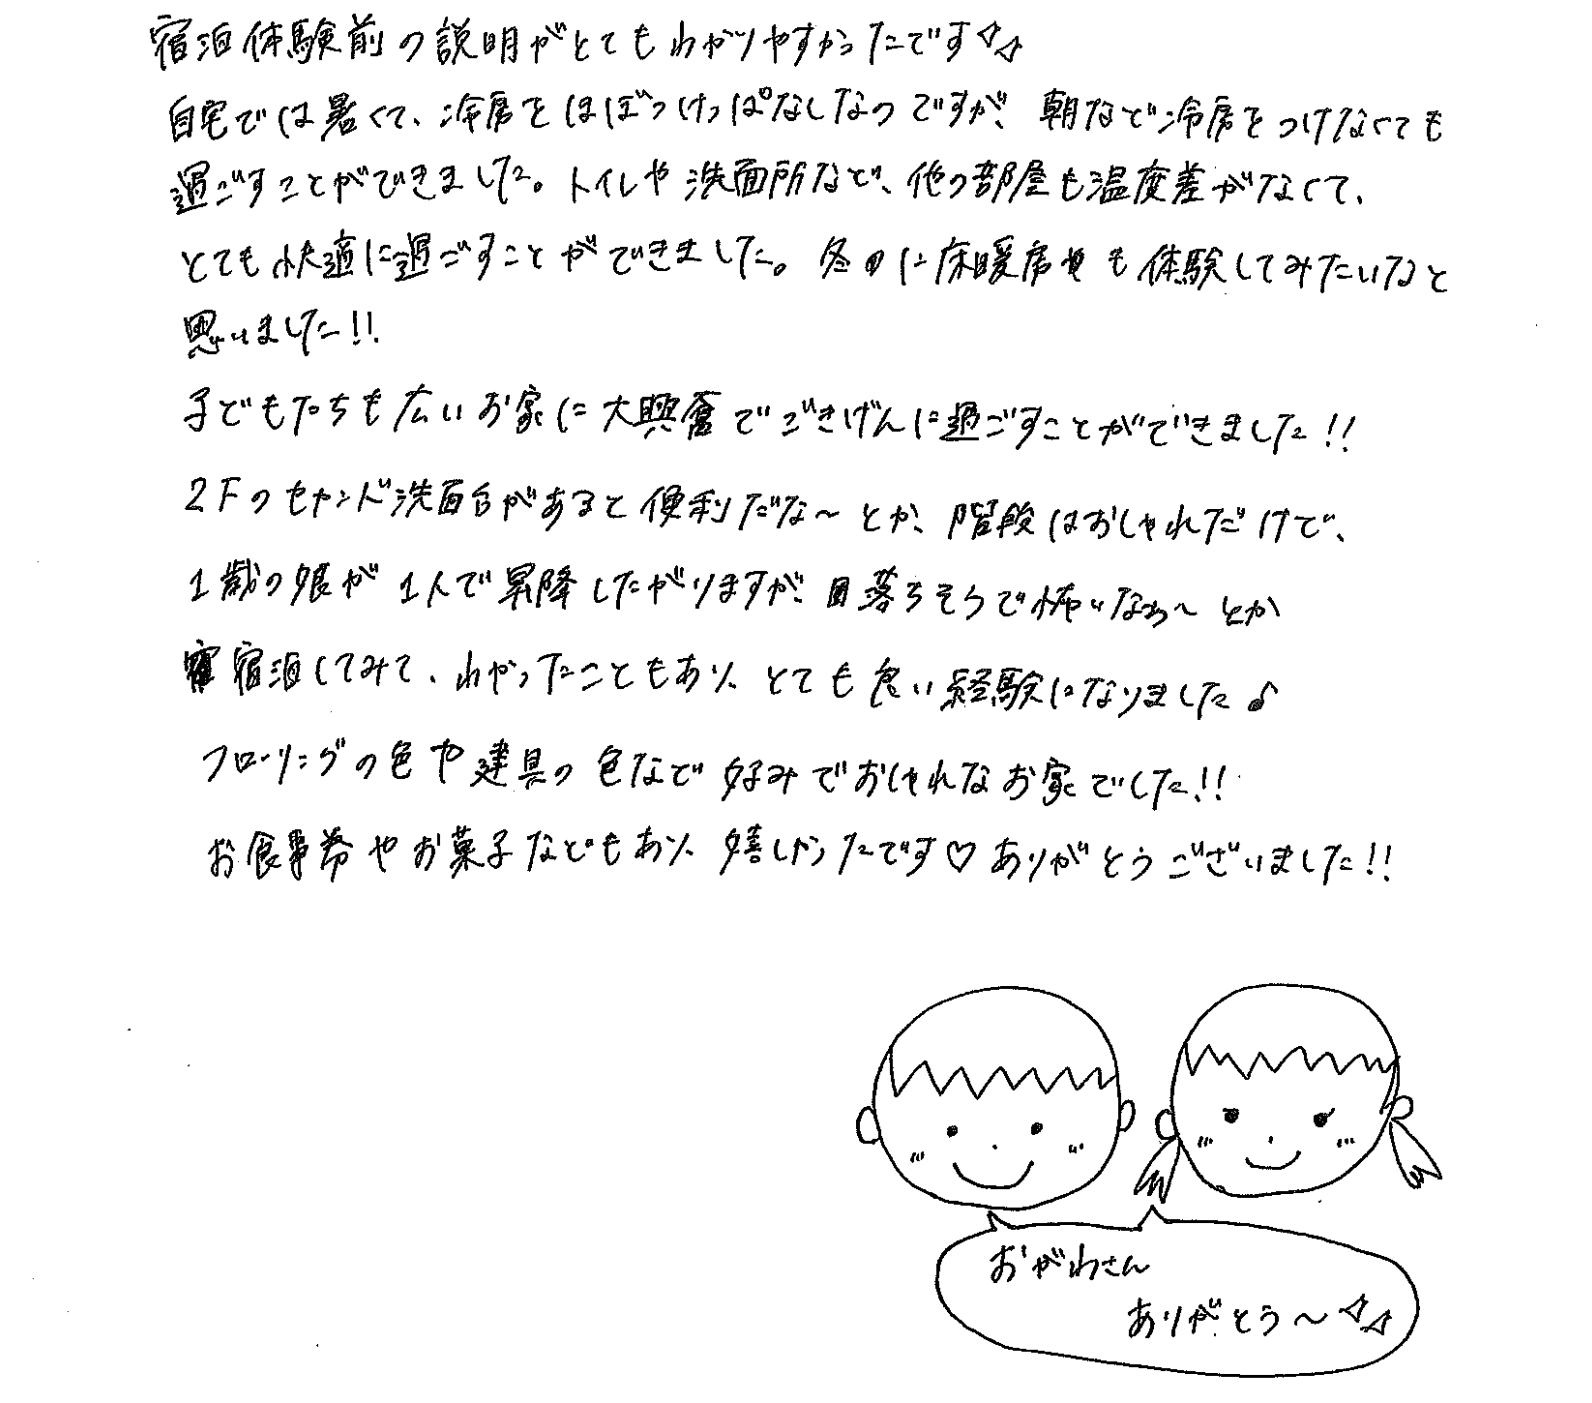 宿泊体験前の説明がとてもわかりやすかったです☆☆
自宅では暑くて、冷房をほぼつけっぱなしなのですが、朝など冷房をつけなくても
過ごすことができました。トイレや洗面所など、他の部屋も温度差がなくて、
とても快適に過ごすことができました。冬に床暖房も体験してみたいなと
思いました!!
子どもたちも広いお家に大興奮でごきげんに過ごすことができました!!
2Fのセカンド洗面台があると便利だな〜とか、階段はおしゃれだけど、
1歳の娘が1人で昇降したがりますが、落ちそうで怖いなぁ〜とか
宿泊してみて、わかったこともあり、とても良い経験になりました♪
フローリングの色や建具の色など好みでおしゃれなお家でした!!
お食事券やお菓子などもあり、嬉しかったです♡ありがとうございました!!
おがわさん
ありがとう〜☆☆